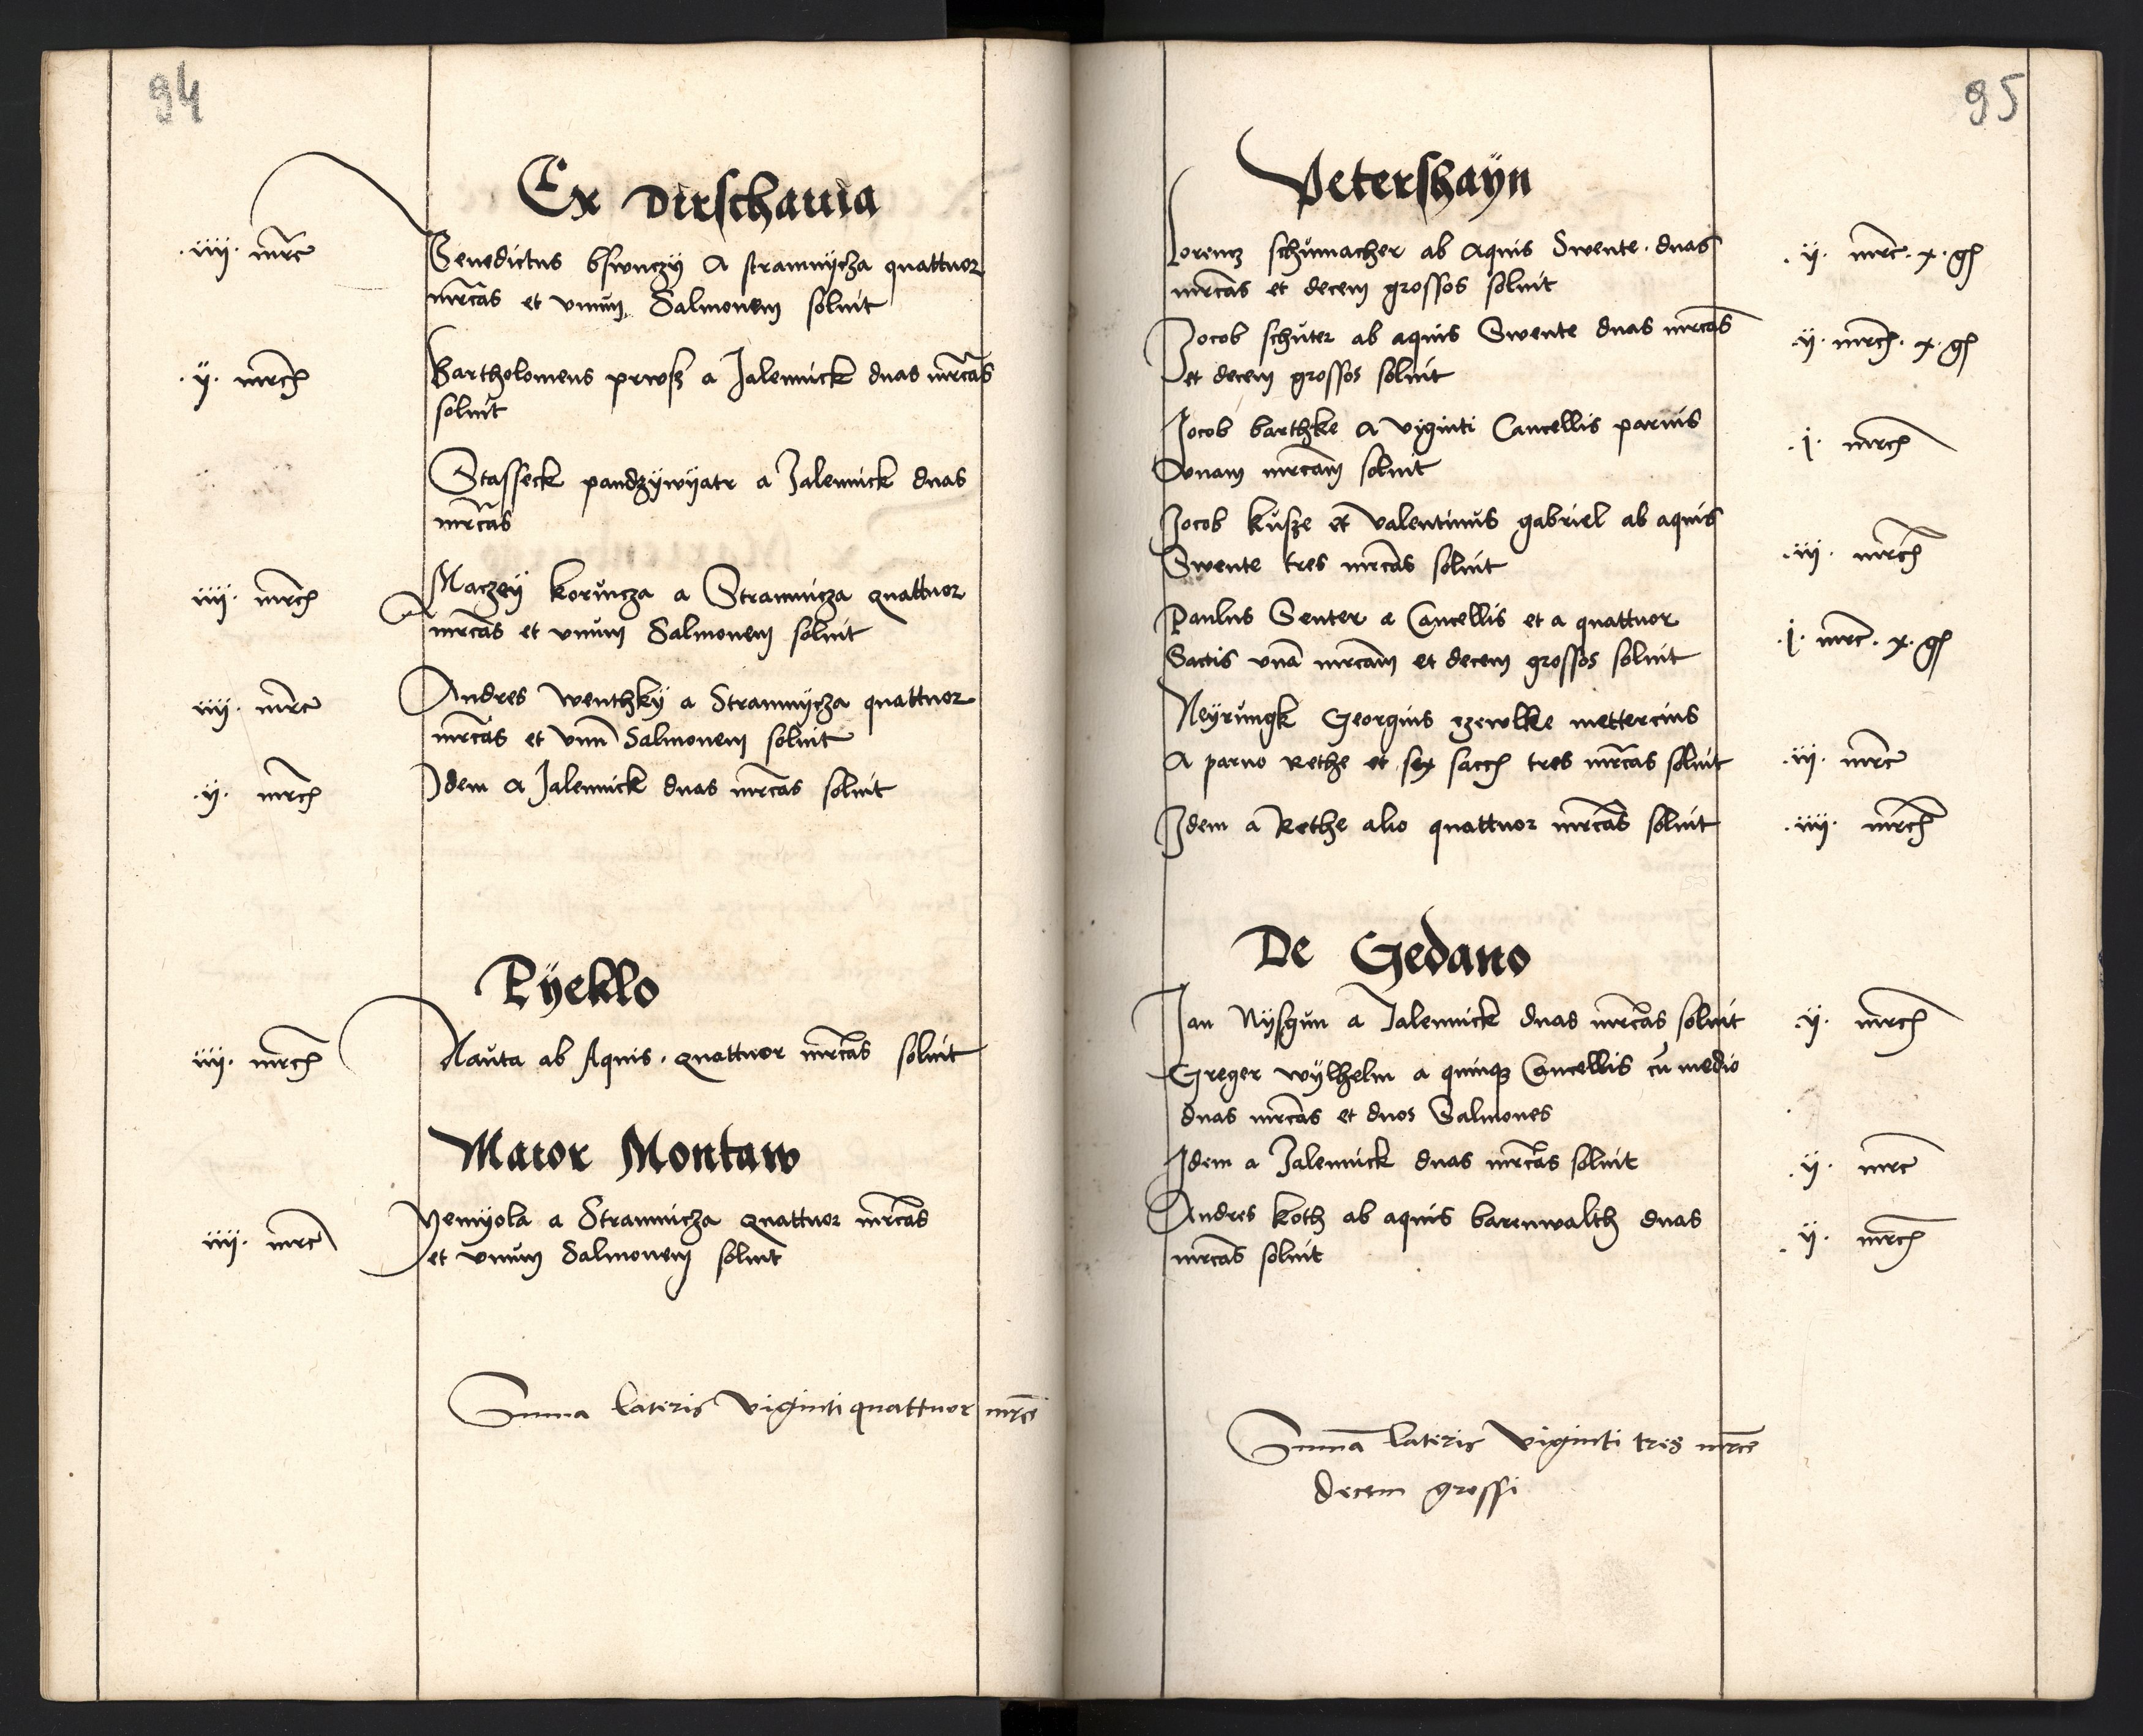 94
Ex Dirschauia
.iiij. mrc Benedictus bswnczÿ A stramnÿcza quattuor
mrcas et vnum Salmonem soluit
.ij. mrc Bartholomeus prwsz a Jalennick duas mrcas
soluit
Stasseck pandzÿwÿatr a Jalennick duas
mrcas
iiij. mrc Maczeÿ korŭncza a Stramnicza quattuor
mrcas et vnum Salmonem soluit
iiij. mrc Andres wenthkÿ a Stramnÿcza quattuor
mrcas et vnu Salmonem soluit
.ij. mrc Idem A Jalennick duas mrcas soluit
Pÿeklo
iiij. mrc Nauta ab Aquis. quattuor mrcas soluit
Maior Montaw
iiij. mrc Yemÿola a Stramnicza quattuor mrcas
et vnum Salmonem soluit
Summa lateris viginti quattuor mrce
95
Petershaÿn
Lorencz schŭmacher ab Aquis Swente. duas .ij. mrc. x. gs
mrcas et decem grossos soluit
Jocob schŭter ab aquis Swente duas mrcas .ij. mrc. x. gs
et decem grossos soluit
Jocob barthke A viginti Cancellis paruis .j. mrc
vnam mrcam soluit
Jocob kŭsze et valentinŭs gabriel ab aquis
Swente tres mrcas soluit .iij. mrc
Paulus Senter a Cancellis et a quattuor .j. mrc. x. gs
Sactis vna mrcam et decem grossos soluit
Neÿrŭngk Georgius zzewlke mettercius
A paruo Rethe et sex sacc tres mrcas soluit .iij. mrc
Idem a Rethe alio quattuor mrcas soluit .iiij. mrc
De Gedano
Jan Nÿsgŭn a Jalennick duas mrcas soluit .ij. mrc
Greger wÿlhelm a quinq Cancellis cu medio
duas mrcas et duos Salmones
Idem a Jalennick duas mrcas soluit .ij. mrc
Andres koth ab aquis barenwalth duas .ij. mrc
mrcas soluit
Summa lateris viginti tres mrce
decem grossi